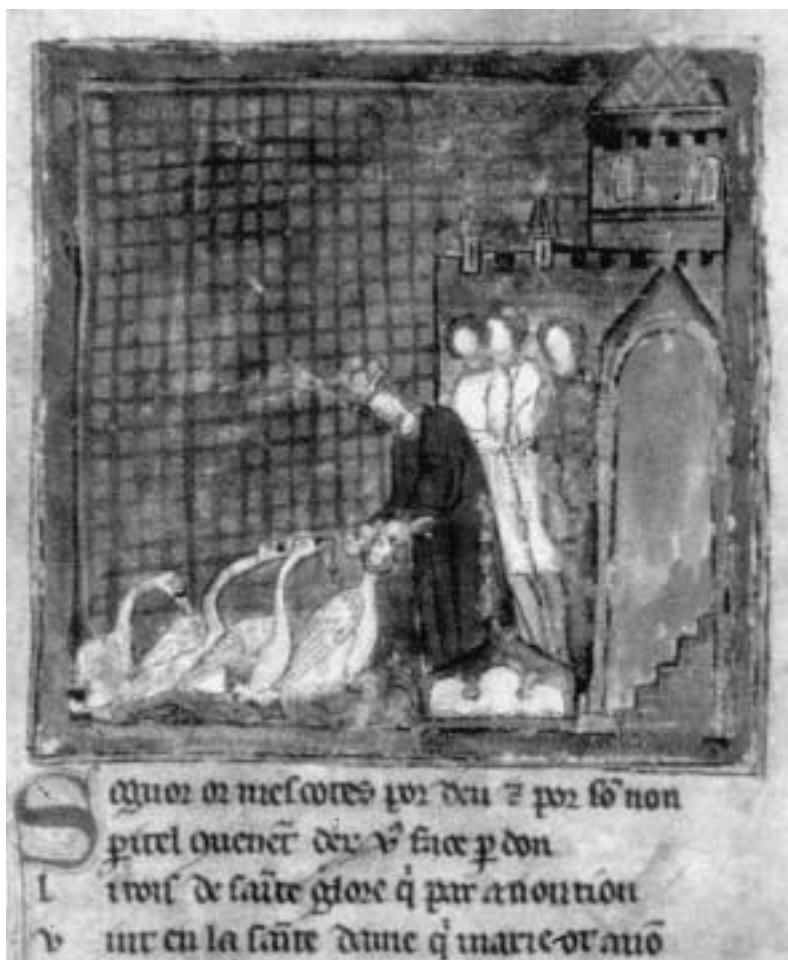 Segnor or mescotes por deu ⁊ por sō non
ꝑ itel ꝯuenēt deu vꝰ face ꝑdon
L i rois de saīte glore q̇ par anontion
V int en la saīte dame q̇ marie ot a nō